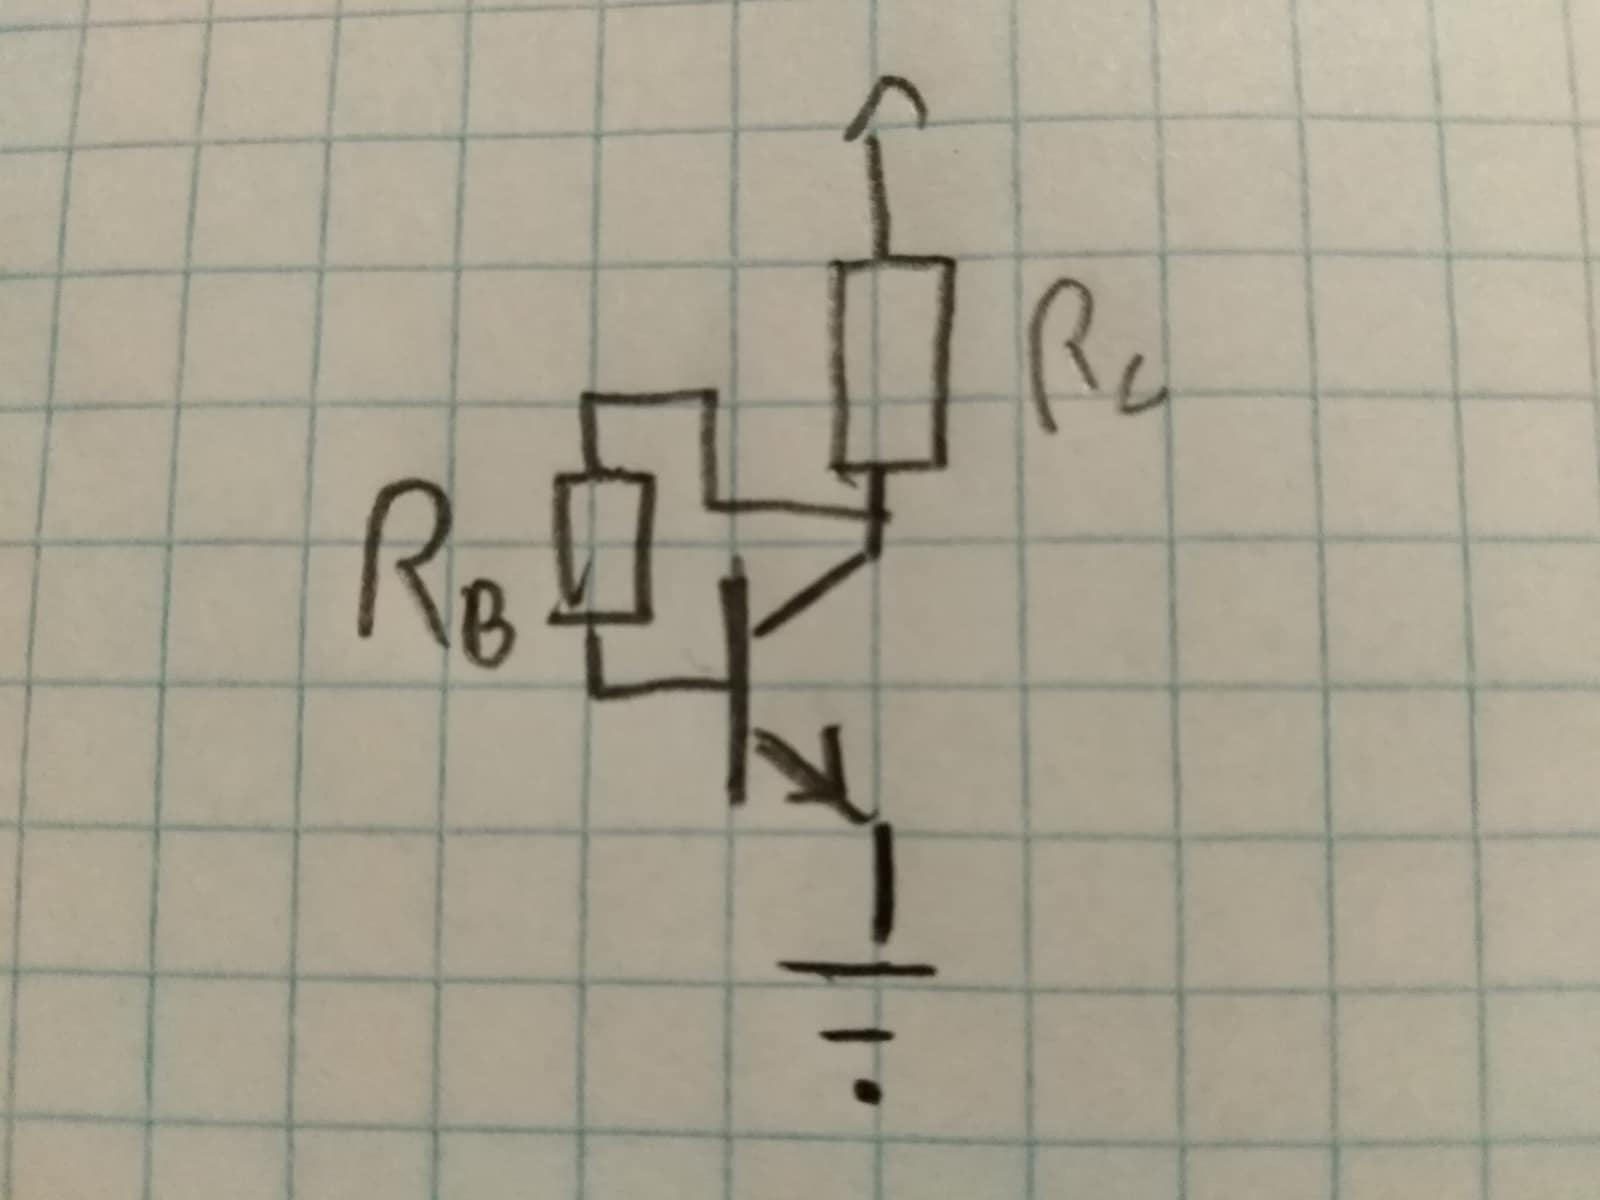 RC
RB